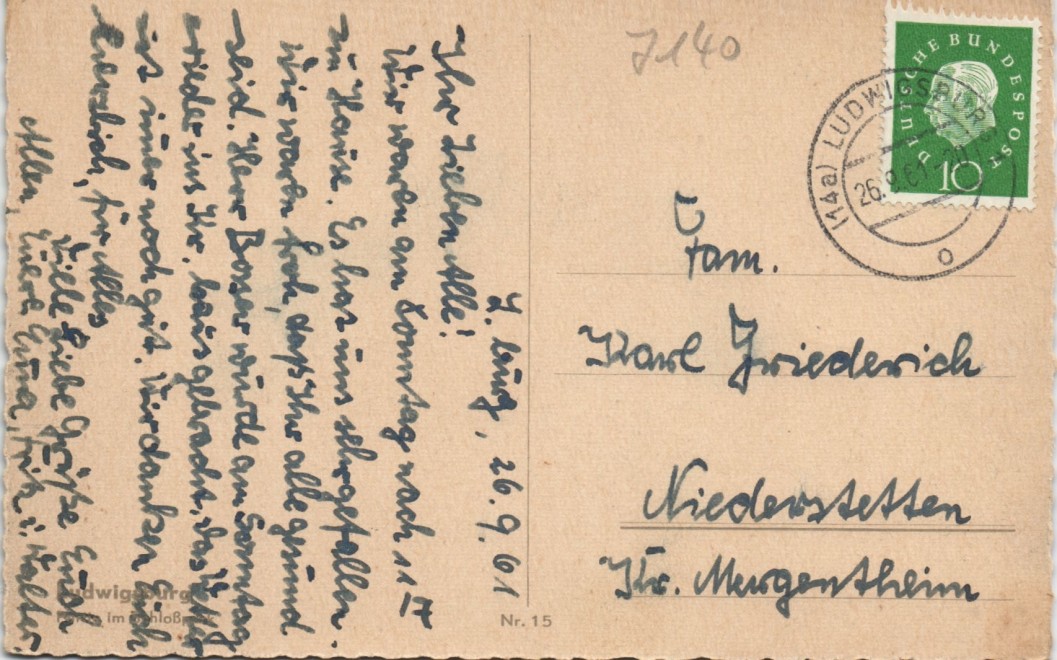 L. burg, 26.9.61
Ihr Lieben Alle!
Wir waren am Sonntag nach 11
zu Hause. Es hat uns sehr gefallen.
Wir waren froh, daß Ihr alle gesund
seid. Herr Boser wurde am Sonntag
wieder ins Kr. haus gebracht. das
ist immer noch gut. Wir danken Euch
herzlich, für Alles
Viele liebe Grüße Euch
Allen, Eure Fritz u. Walter.
Ludwigsburg
im Schloßpark
Nr. 15
7140
DEUTSCHE BUNDESPOST
10
(14a) LUDWIGSBURG
26.9.61
Fam.
Karl Friederich
Niederstetten
Kr. Mergentheim